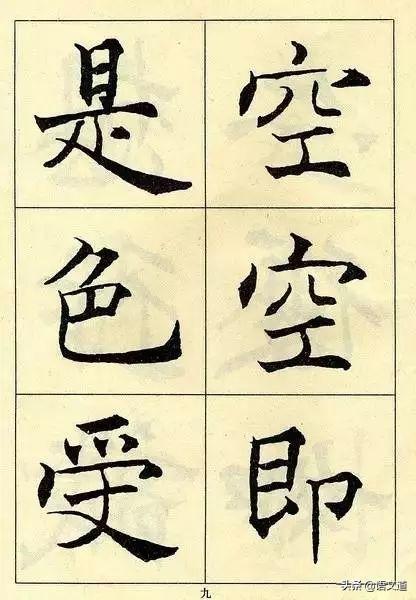 空空即
是色受
九
头条 @语文道